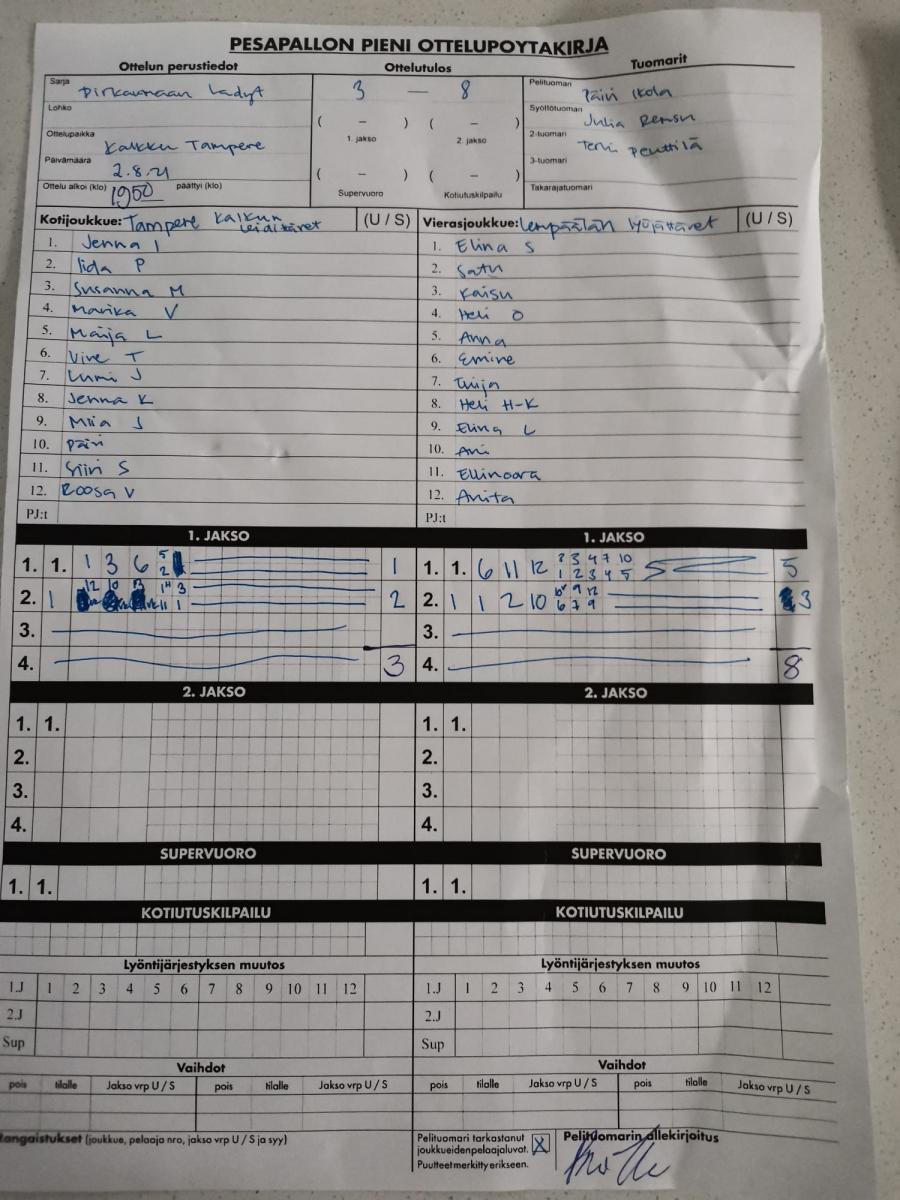 PESAPALLON PIENI OTTELUPOYTAKIRJA
Ottelun perustiedot Ottelutulos Tuomarit
Sarja Pirkanmaan Ladyt
3 — 8
Pelituomari Päivi Ikola
Lohko
( – ) ( – )
Syöttötuomari Julia
1. jakso 2. jakso
Ottelupaikka Kalkku Tampere
2-tuomari Penttilä
Päivämäärä 2.8.21
( – ) ( – )
3-tuomari
Ottelu alkoi (klo) 1950 päättyi (klo)
Supervuoro Kotiutuskilpailu
Takarajatuomari
Kotijoukkue: Tampere Kalkun (U / S) Vierasjoukkue: Lempäälän lyöjättäret (U / S)
1. Jenna I 1. Elina S
2. Iida P 2. Satu
3. Susanna M 3. Kaisu
4. Marika V 4. Heli O
5. Marja L 5. Anna
6. Vive T 6. Emine
7. Lumi J 7. Tuija
8. Jenna K 8. Heli H-K
9. Miia J 9. Elina L
10. Päivi 10. Ani
11. Siiri S 11. Ellinoora
12. Roosa V 12. Anita
PJ:t PJ:t
1. JAKSO 1. JAKSO
1. 1. 1 3 6 5 2 1 1. 1. 6 11 12 2 3 4 7 10 1 2 3 4 5 5 5
2. 1 12 10 14 3 11 1 2 2. 1 1 2 10 9 12 6 7 9 3
3. 3.
4. 3 4. 8
2. JAKSO 2. JAKSO
1. 1. 1. 1.
2. 2.
3. 3.
4. 4.
SUPERVUORO SUPERVUORO
1. 1. 1. 1.
KOTIUTUSKILPAILU KOTIUTUSKILPAILU
Lyöntijärjestyksen muutos Lyöntijärjestyksen muutos
1.J 1 2 3 4 5 6 7 8 9 10 11 12 1.J 1 2 3 4 5 6 7 8 9 10 11 12
2.J 2.J
Sup Sup
Vaihdot Vaihdot
pois tilalle Jakso vrp U / S pois tilalle Jakso vrp U / S pois tilalle Jakso vrp U / S pois tilalle Jakso vrp U / S
(joukkue, pelaaja nro, jakso vrp U / S ja syy)
Pelituomari tarkastanut
joukkueidenpelaajaluvat. X
Puutteet merkitty erikseen.
Pelituomarin allekirjoitus